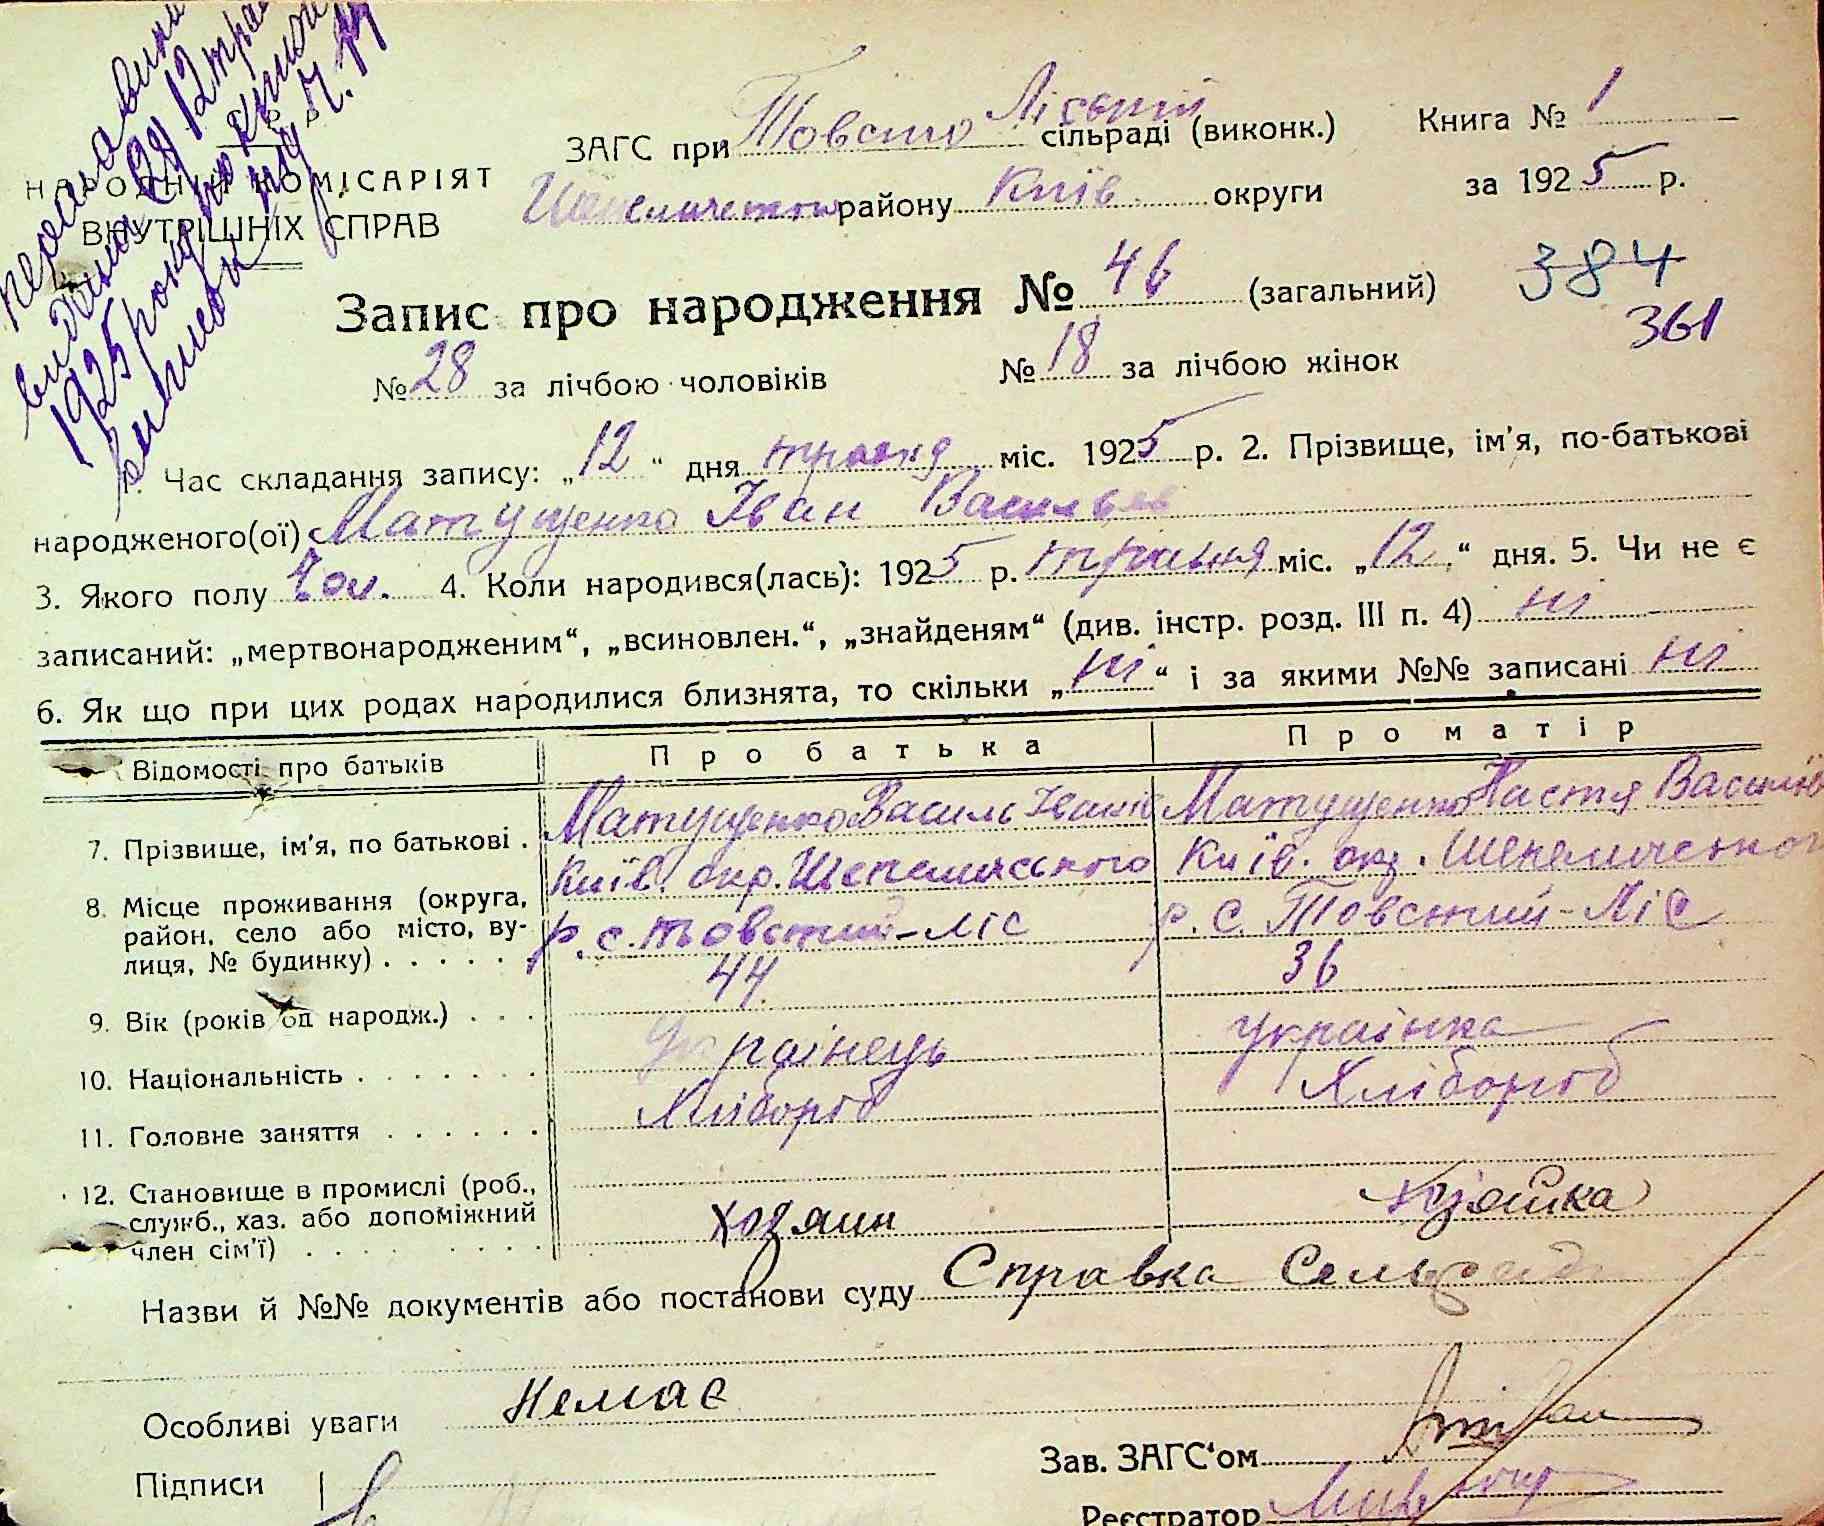 видана 12
1925 року по книзі
ЗАГС при Товсто Ліській сільраді (виконк.) Книга № 1
НАРОДНИЙ КОМІСАРІЯТ
ВНУТРІШНІХ СПРАВ
району Київ округи за 1925 р.
Запис про народження № 46 (загальний) 384
361
№ 28 за лічбою чоловіків № 18 за лічбою жінок
Час складання запису: „12“ дня травня міс. 1925 р. 2. Прізвище, ім'я, по-батькові
народженого(ої) Матущенко Іван Васильев
3. Якого полу Чол. 4. Коли народився(лась): 1925 р. травня міс. „12“ дня. 5. Чи не є
записаний: „мертвонародженим“, „всиновлен.“, „знайденям“ (див. інстр. розд. III п. 4) ні
6. Як що при цих родах народилися близнята, то скільки „ні“ і за якими №№ записані ні
Відомості про батьків Про батька Про матір
7. Прізвище, ім'я, по батькові . Матущенко Василь Іванів Матущенко Настя Василів
8. Місце проживання (округа, район, село або місто, ву-лиця, № будинку) . . . . . Київ. окр. Шепелицького р. с. Товстий-Ліс Київ. окр. Шепелицького р. с. Товстий-Ліс
9. Вік (років од народж.) . . . 44 36
10. Національність . . . . . . . Українець Українка
11. Головне заняття . . . . . . Хлібороб Хлібороб
12. Становище в промислі (роб., служб., хаз. або допоміжний член сім'ї) . . . . . . . . . Хозяин хозяйка
Назви й №№ документів або постанови суду Справка Сельрад
Особливі уваги Немає
Зав. ЗАГС'ом
Підписи
Реєстратор